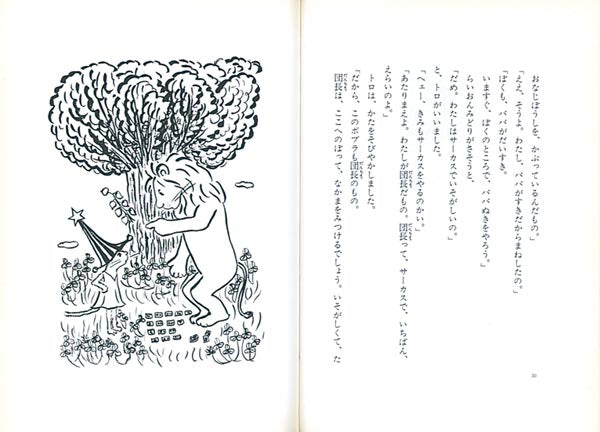 おなじぼうしを、かぶっているんだもの。」
「ええ、そうよ。わたし、パパがすきだからまねしたの。」
「ぼくも、パパがだいすき。
いますぐ、ぼくのところで、ババぬきをやろう。」
らいおんみどりがさそうと、
「だめ。わたしはサーカスでいそがしいの。」
と、トロがいいました。
「ヘェー、きみもサーカスをやるのかい。」
「あたりまえよ。わたしが団長だもの。団長って、サーカスで、いちばん、
えらいのよ。」
トロは、かたをそびやかしました。
「だから、このポプラも団長のもの。
団長は、ここへのぼって、なかまをみつけるでしょう。いそがしくて、た
30